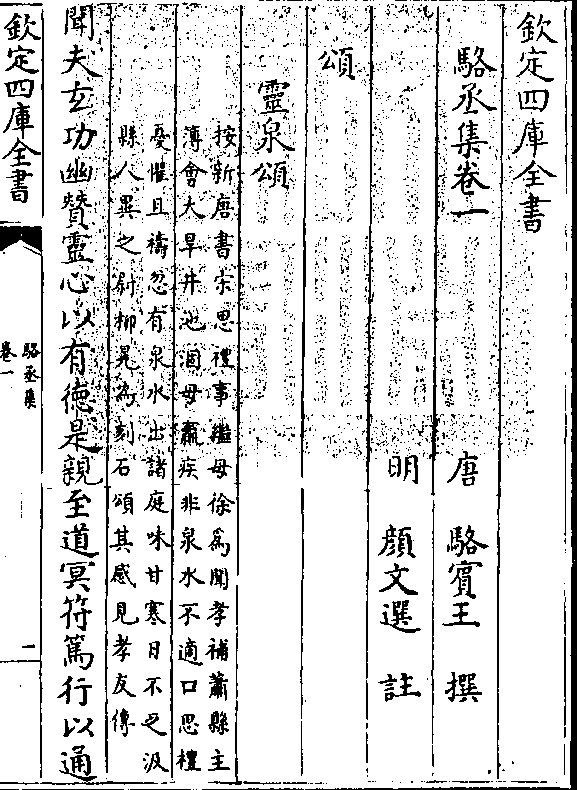 欽定四庫全書
駱丞集卷一
唐 駱賓王 撰
明 顔文選 註
頌
靈泉頌
按新唐書宋思禮事繼母徐為聞孝補蕭縣主
薄會大旱井池涸母羸疾非泉水不適口思禮
憂懼且禱忽有泉水出諸庭味甘寒日不乏汲
縣人異之尉柳晃為刻石頌其感見孝友傳
聞夫玄功幽贊靈心以有德是親至道冥符篤行以通
欽定四庫全書
駱丞集
卷一
一